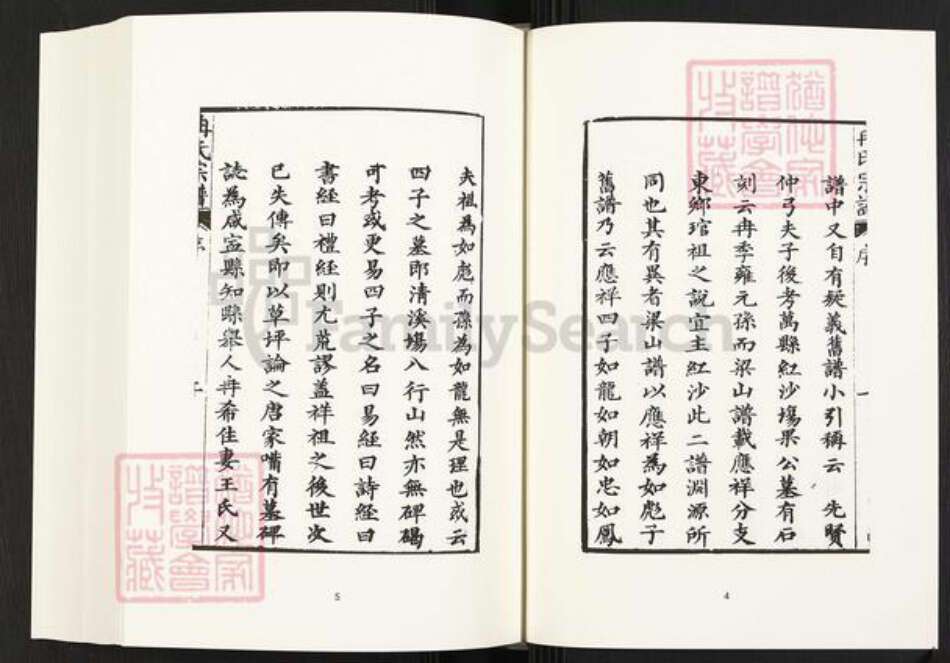 冉氏宗譜 序 一
譜中又自有疑義舊譜小引稱云 先賢
仲弓夫子後考萬縣紅沙塲果公墓有石
刻云冉季雍元孫而梁山譜載應祥分支
東鄉琯祖之說宜主紅沙此二譜淵源所
同也其有異者梁山譜以應祥為如彪子
舊譜乃云應祥四子如龍如朝如忠如鳳
4
夫祖為如彪而孫為如龍無是理也或云
四子之墓即清溪塲八行山然亦無碑碣
可考或更易四子之名曰易經曰詩經曰
書經曰禮經則尤荒謬蓋祥祖之後世次
已失傳矣即以草坪論之唐家嘴有墓碑
誌為咸寍縣知縣舉人冉希住妻王氏又
冉氏宗譜 序 二
5
FamilySearch
猶他家
譜學會
收藏
猶他家
譜學會
收藏